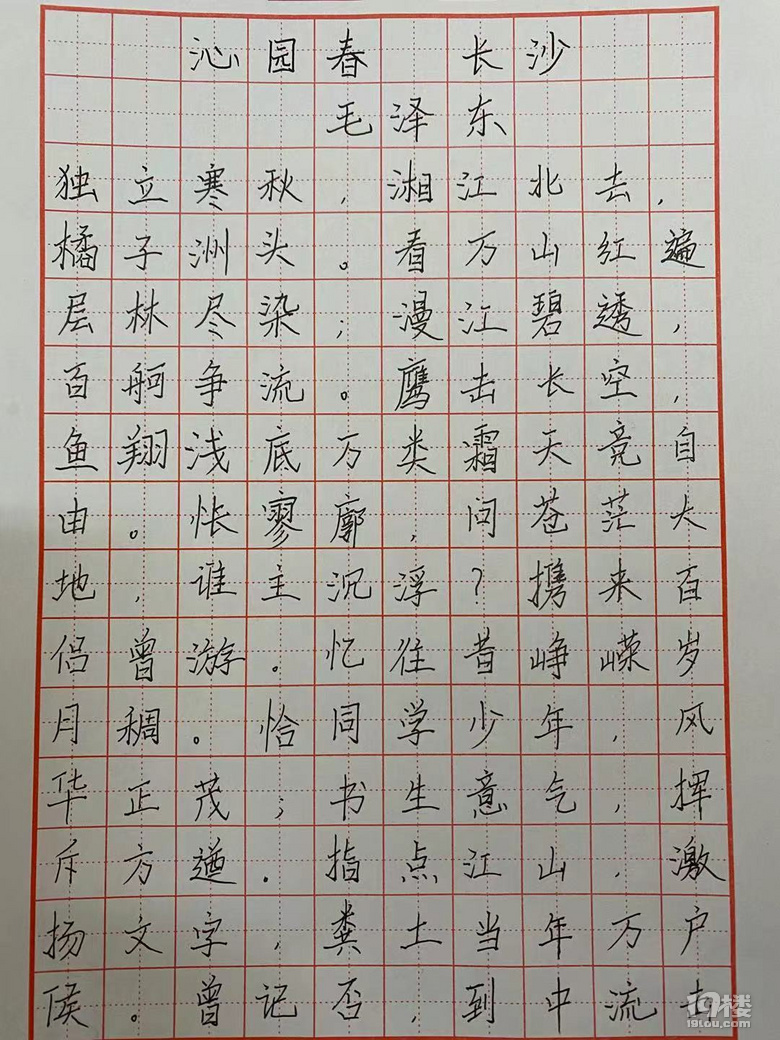 沁园春 长沙
毛泽东
独立寒秋,湘江北去,
橘子洲头。看万山红遍
层林尽染;漫江碧透,
百舸争流。鹰击长空,
鱼翔浅底万类霜天竞自
由。怅寥廓,问苍茫大
地,谁主沉浮?携来百
侣曾游。忆往昔峥嵘岁
月稠。恰同学少年,风
华正茂;书生意气,挥
斥方遒.指点江山,激
扬文字,粪土当年万户
侯。曾记否,到中流击
19楼
19lou.com